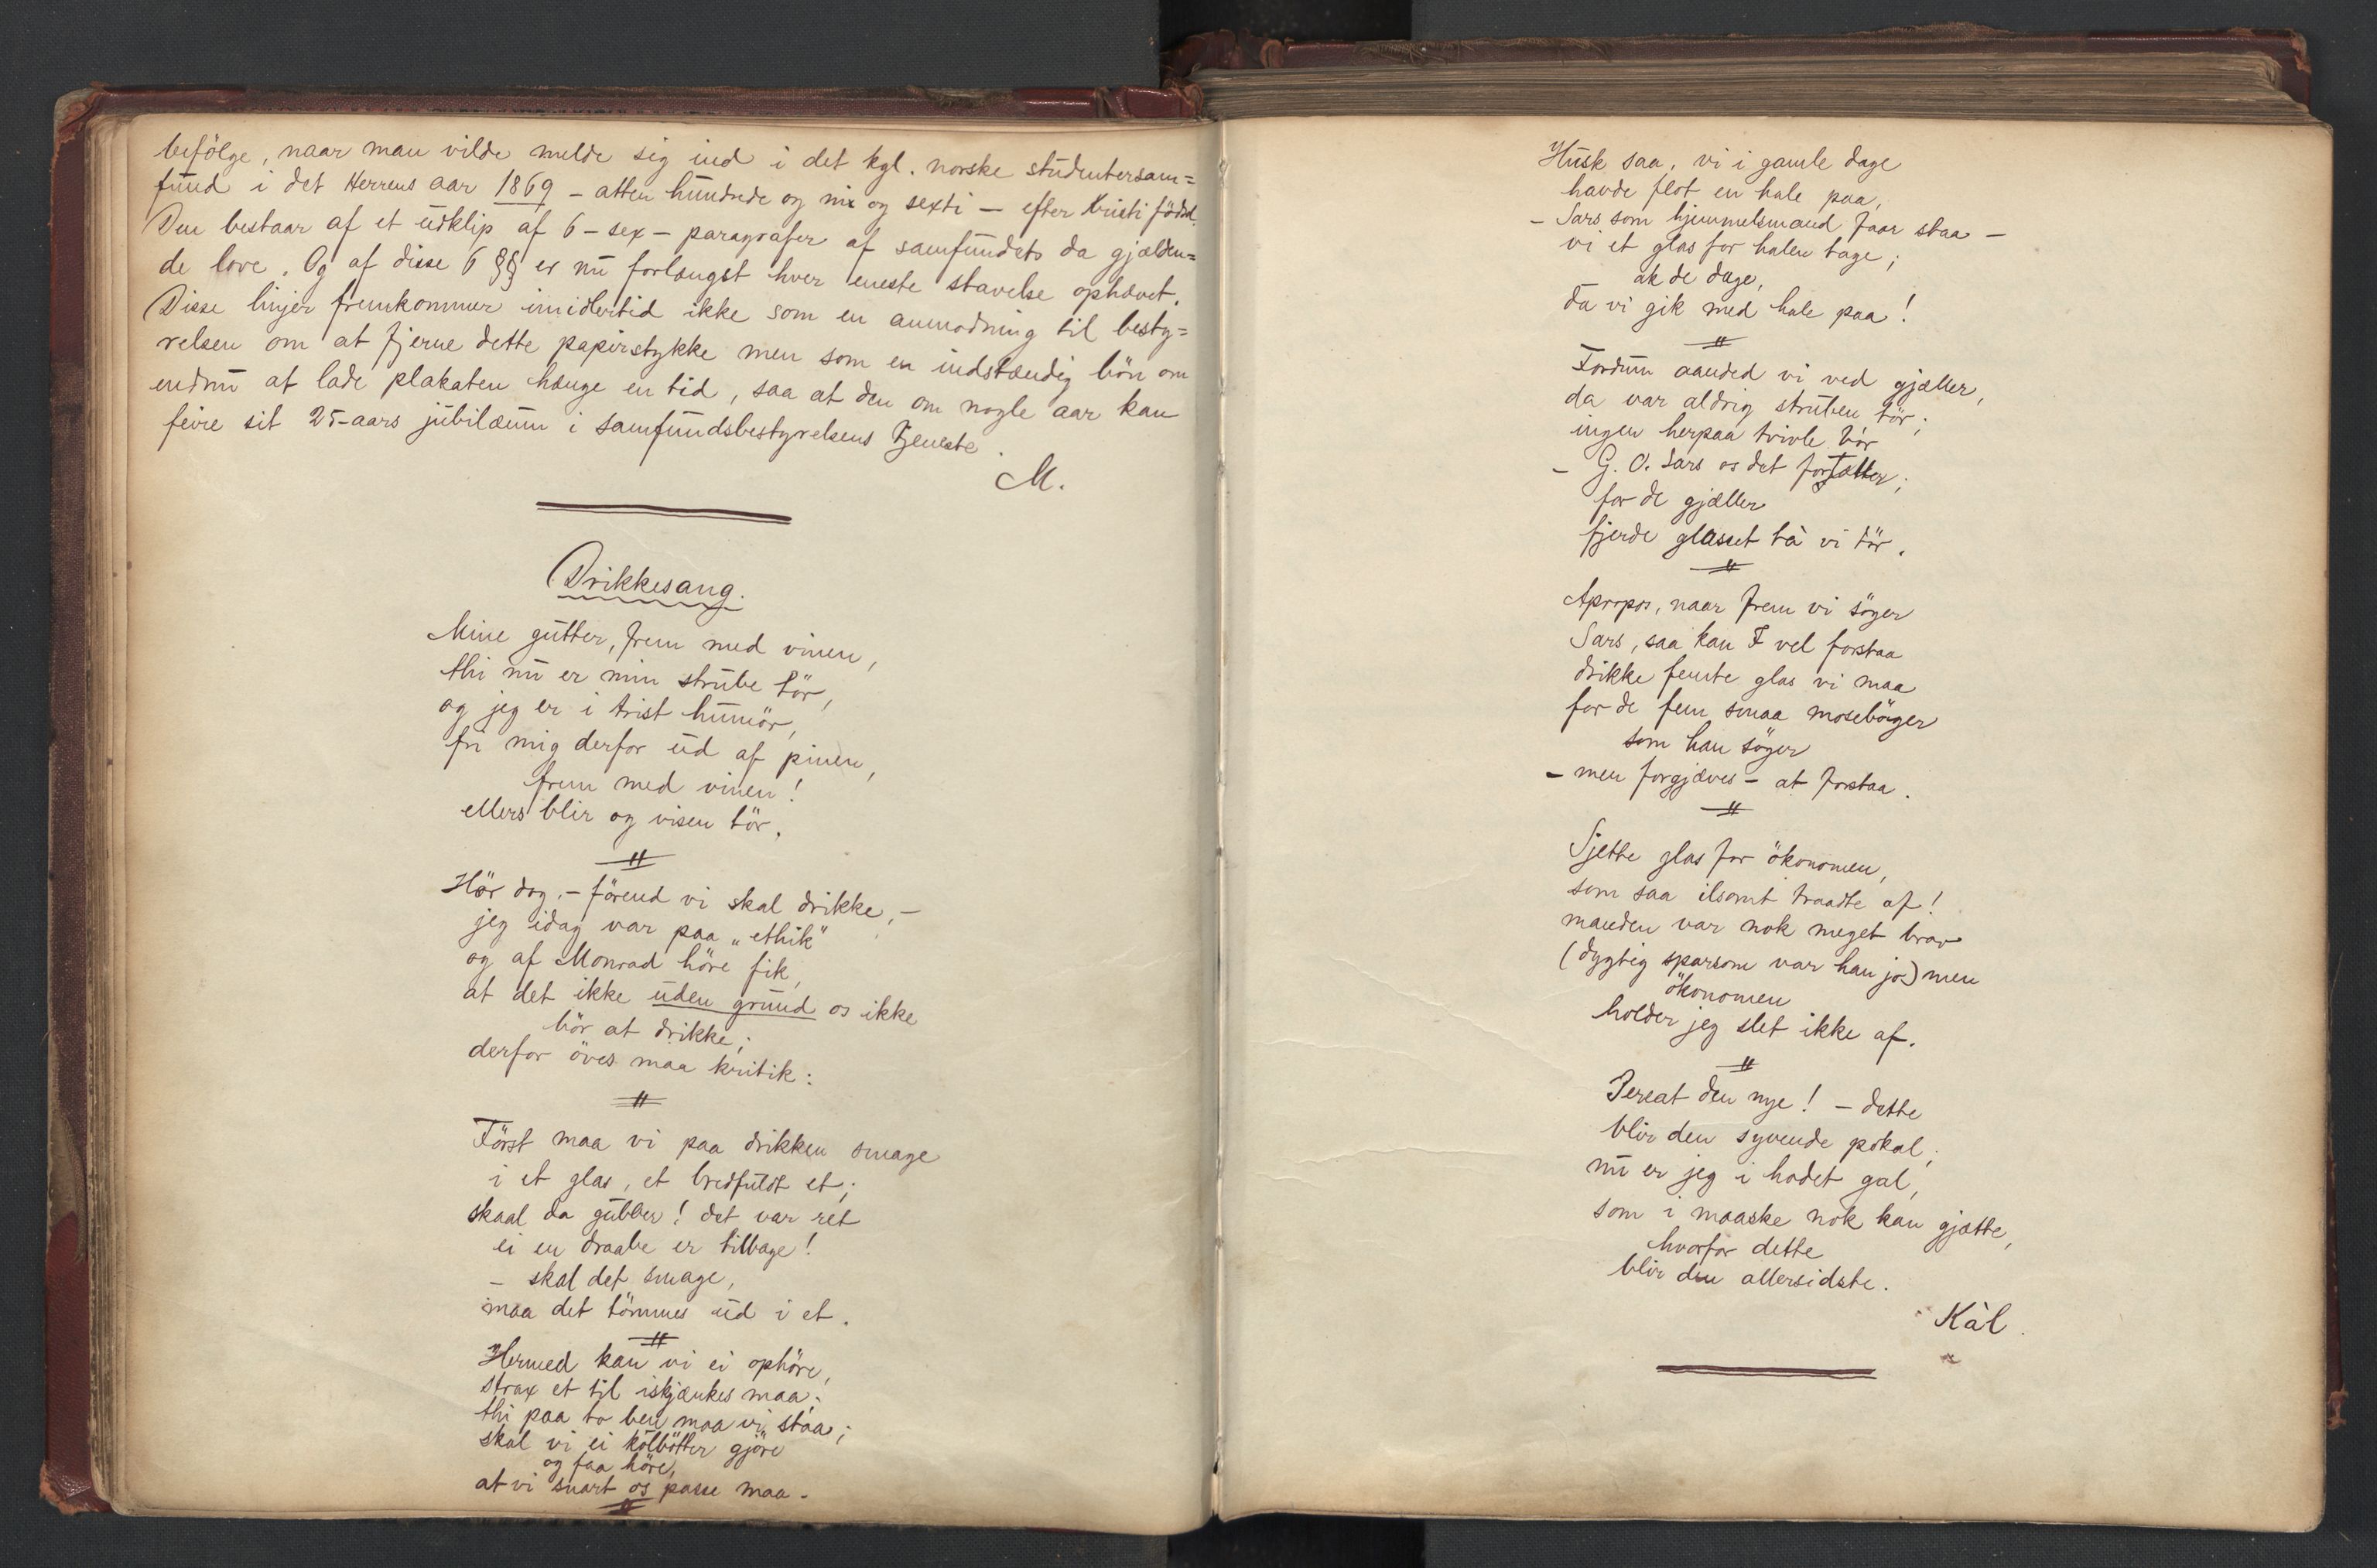 befölge, naar man vilde melde sig ind i det kgl. norske studentersam=
fund i det Herrens aar 1869 - atten hundrede og ni og sexti - efter Kristi födsel.
Den bestaar af et udklip af 6 - sex - paragrafer af samfundets da gjælden=
de love. Og af disse 6 §§ er nu forlængst hver eneste stavelse ophævet.
Disse linjer fremkommer imidlertid ikke som en anmodning til besty=
relsen om at fjerne dette papirstykke men som en indstændig bön om
endnu at lade plakaten hænge en tid, saa at den om nogle aar kan
feire sit 25-aars jubilæum i samfundsbestyrelsens tjeneste.
M.
Drikkesang.
Mine gutter, frem med vinen,
thi nu er min strube tör,
og jeg er i trist humör,
fri mig derfor ud af pinen,
frem med vinen!
ellers blir og visen tör.
Hör dog, - förend vi skal drikke, -
jeg idag var paa "ethik"
og af Monrad höre fik,
at det ikke uden grund os ikke
bör at drikke;
derfor öves maa kritik:
Först maa vi paa drikken smage
i et glas, et bredfuldt et;
skaal da gubber! det var ret
ei en draabe er tilbage!
- skal det smage,
maa det tömmes ud i et.
Hermed kan vi ei ophöre,
strax et til iskjænkes maa;
thi paa to ben maa vi staa;
skal vi ei kolbötter gjöre
og faa höre,
at vi snart os passe maa.
Husk saa, vi i gamle dage
havde flot en hale paa,
- Sars som hjemmelsmand faar staa -
vi et glas for halen tage;
ak de dage,
da vi gik med hale paa!
Fordum aanded vi ved gjæller,
da var aldrig struben tör;
ingen herpaa tvivle bör
- G. O. Sars os det fortæller;
for de gjæller
fjerde glasset ta vi tör.
Apropos, naar frem vi söger
Sars, saa kan I vel forstaa
drikke femte glas vi maa
for de fem smaa moseböger
som han söger
- men forgjæves - at forstaa.
Sjette glas for ökonomen,
som saa ilsomt traadte af!
manden var nok meget brav
(dygtig sparsom var han jo) men
ökonomen
holder jeg slet ikke af.
Pereat den nye! - dette
blir den syvende pokal;
nu er jeg i hodet gal,
som i maaske nok kan gjætte,
hvorfor dette
blir den allersidste.
Kàl.